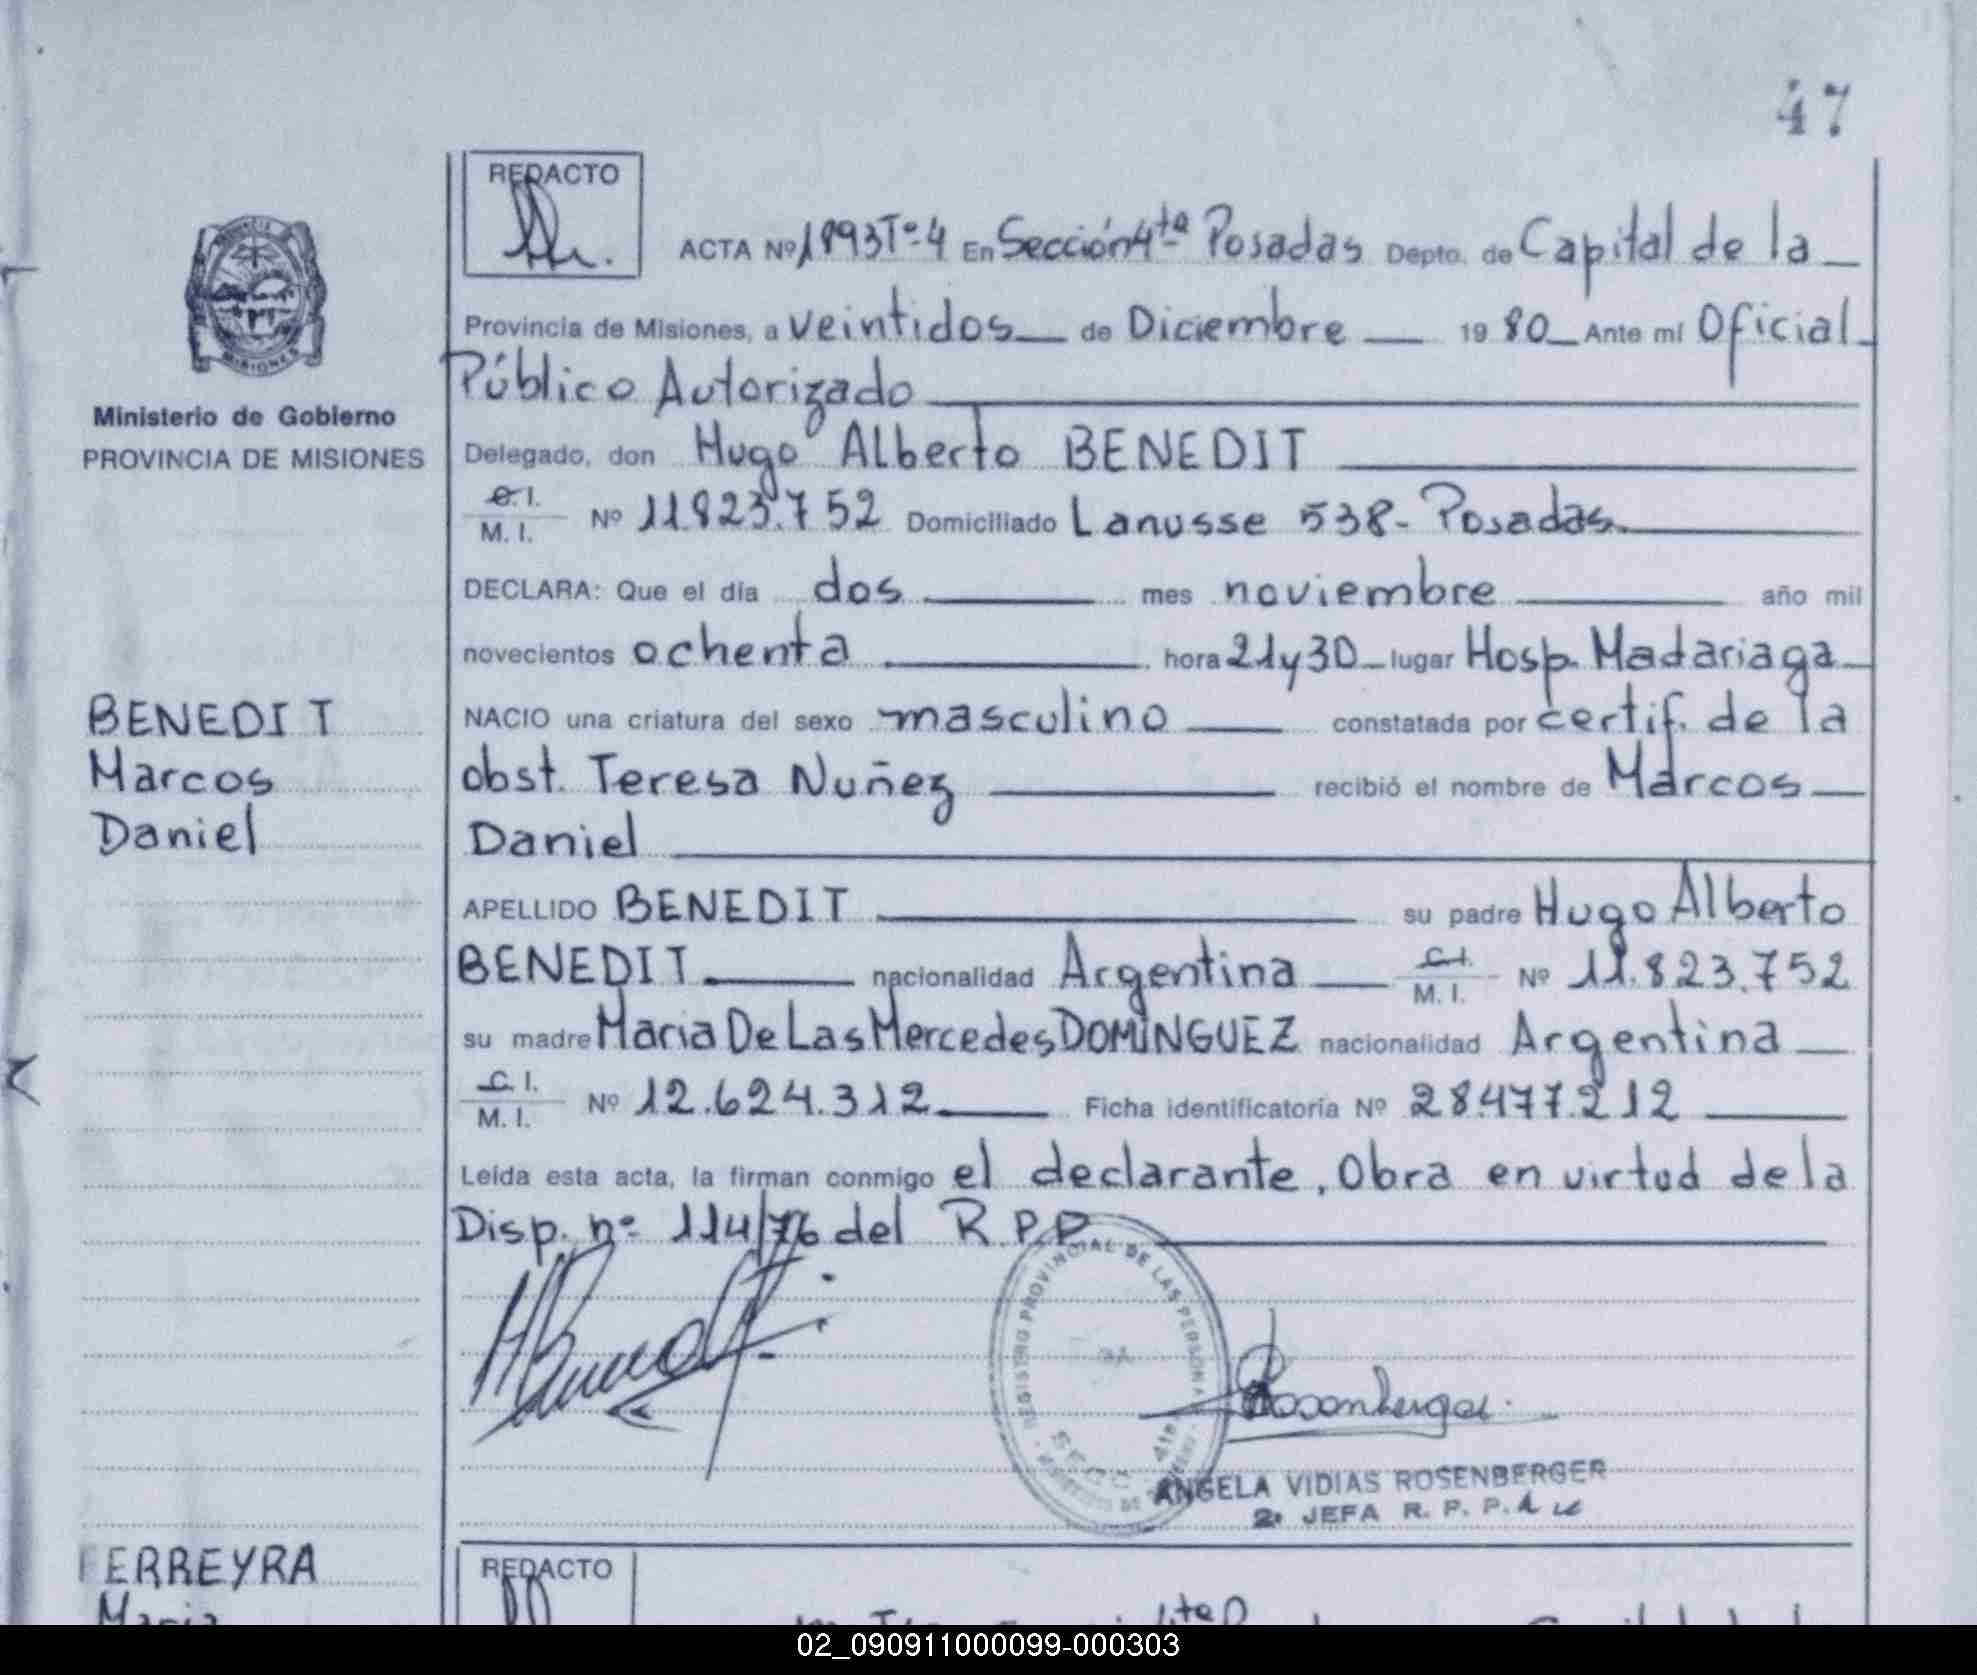 47
REDACTO
ACTA Nº 1893 Tº 4 En Sección 4ta Posadas Depto. de Capital de la
Provincia de Misiones, a veintidos de Diciembre 1980 Ante mí Oficial
Público Autorizado
Ministerio de Gobierno
PROVINCIA DE MISIONES
Delegado, don Hugo Alberto BENEDIT
C.I.
M.I. Nº 11.823.752 Domiciliado Lanusse 538- Posadas.
DECLARA: Que el día dos mes noviembre año mil
novecientos ochenta hora 21 y 30 lugar Hosp. Madariaga
BENEDIT
Marcos
Daniel
NACIO una criatura del sexo masculino constatada por certif. de la
obst. Teresa Nuñez recibió el nombre de Marcos
Daniel
APELLIDO BENEDIT su padre Hugo Alberto
BENEDIT nacionalidad Argentina C.I. M.I. Nº 11.823.752
su madre Maria De Las Mercedes DOMINGUEZ nacionalidad Argentina
C.I.
M.I. Nº 12.624.312 Ficha identificatoria Nº 28.477.212
Leída esta acta, la firman conmigo el declarante, Obra en virtud de la
Disp. nº 114/76 del R P P
REGISTRO PROVINCIAL DE LAS PERSONA
SECC 4ta
Rosenberger
ANGELA VIDIAS ROSENBERGER
2º JEFA R. P. P.
FERREYRA
Maria
REDACTO
02_090911000099-000303